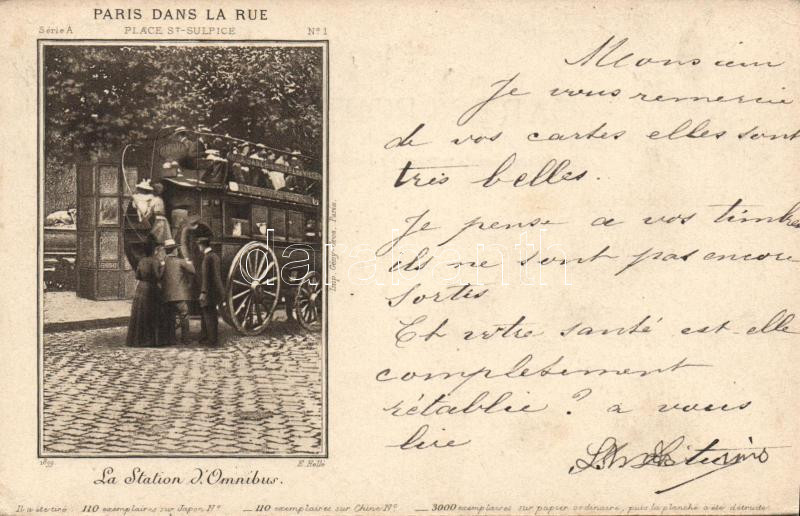 PARIS DANS LA RUE
Série A PLACE ST-SULPICE No 1
Imp. Geny-Gros, Paris.
1899 E. Hellé
La Station d'Omnibus.
Il a été tiré 110 exemplaires sur Japon No — 110 exemplaires sur Chine No — 3000 exemplaires sur papier ordinaire, puis la planche a été détruite.
Monsieur
Je vous remercie
de vos cartes elles sont
très belles.
Je pense a vos timbres
ils ne sont pas encore
sortis
Et votre santé est-elle
complètement
rétablie ? a vous
lire
darabanth